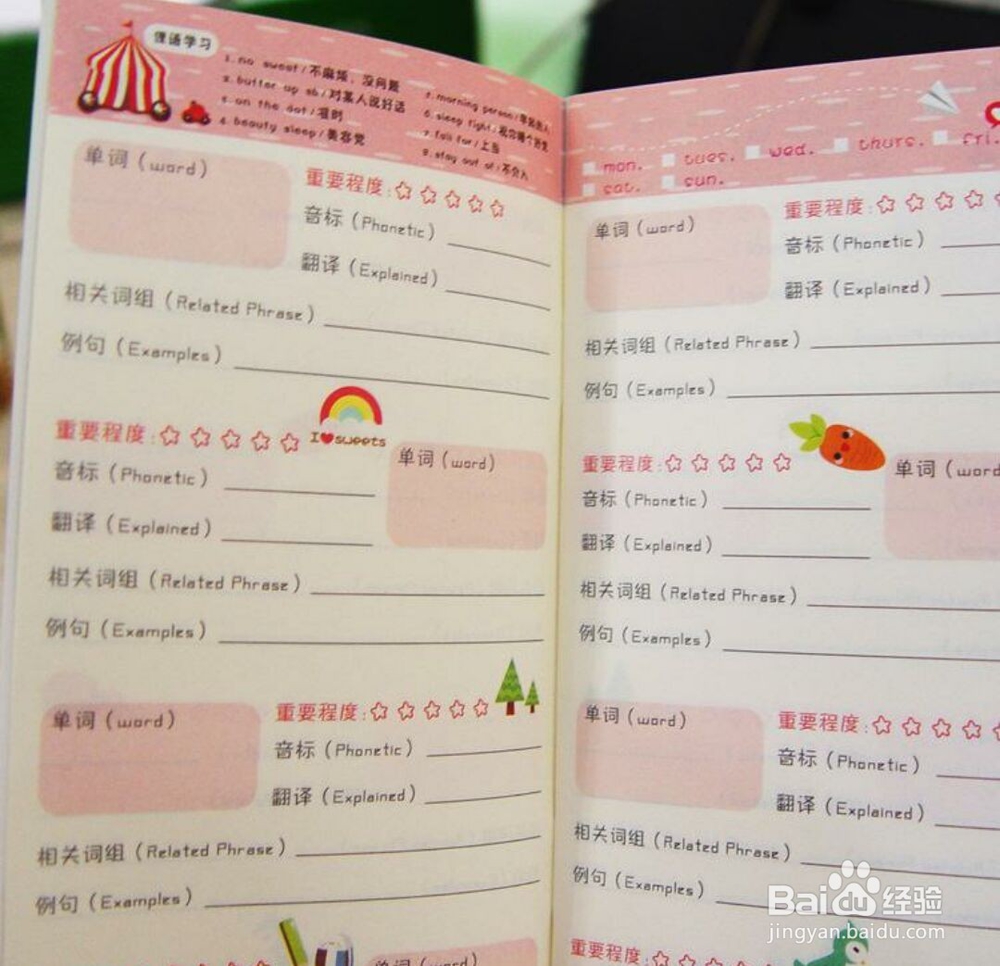 俚语学习
1. no sweet/不麻烦,没问题
2. butter up sb/对某人说好话
3. on the dot/准时
4. beauty sleep/美容觉
5. morning person/早起的人
6. sleep tight/祝你睡个好觉
7. fall for/上当
8. stay out of/不介入
单词(word)
重要程度:
音标(Phonetic)
翻译(Explained)
相关词组(Related Phrase)
例句(Examples)
重要程度:
I sweets
单词(word)
音标(Phonetic)
翻译(Explained)
相关词组(Related Phrase)
例句(Examples)
单词(word)
重要程度:
音标(Phonetic)
翻译(Explained)
相关词组(Related Phrase)
例句(Examples)
单词(word)
mon. tues. wed. thurs. fri.
sat. sun.
单词(word)
重要程度:
音标(Phonetic)
翻译(Explained)
相关词组(Related Phrase)
例句(Examples)
重要程度:
单词(word
音标(Phonetic)
翻译(Explained)
相关词组(Related Phrase)
例句(Examples)
单词(word)
重要程度:
音标(Phonetic)
翻译(Explained)
相关词组(Related Phrase)
例句(Examples)
重要程度:
Baidu 经验
jingyan.baidu.com